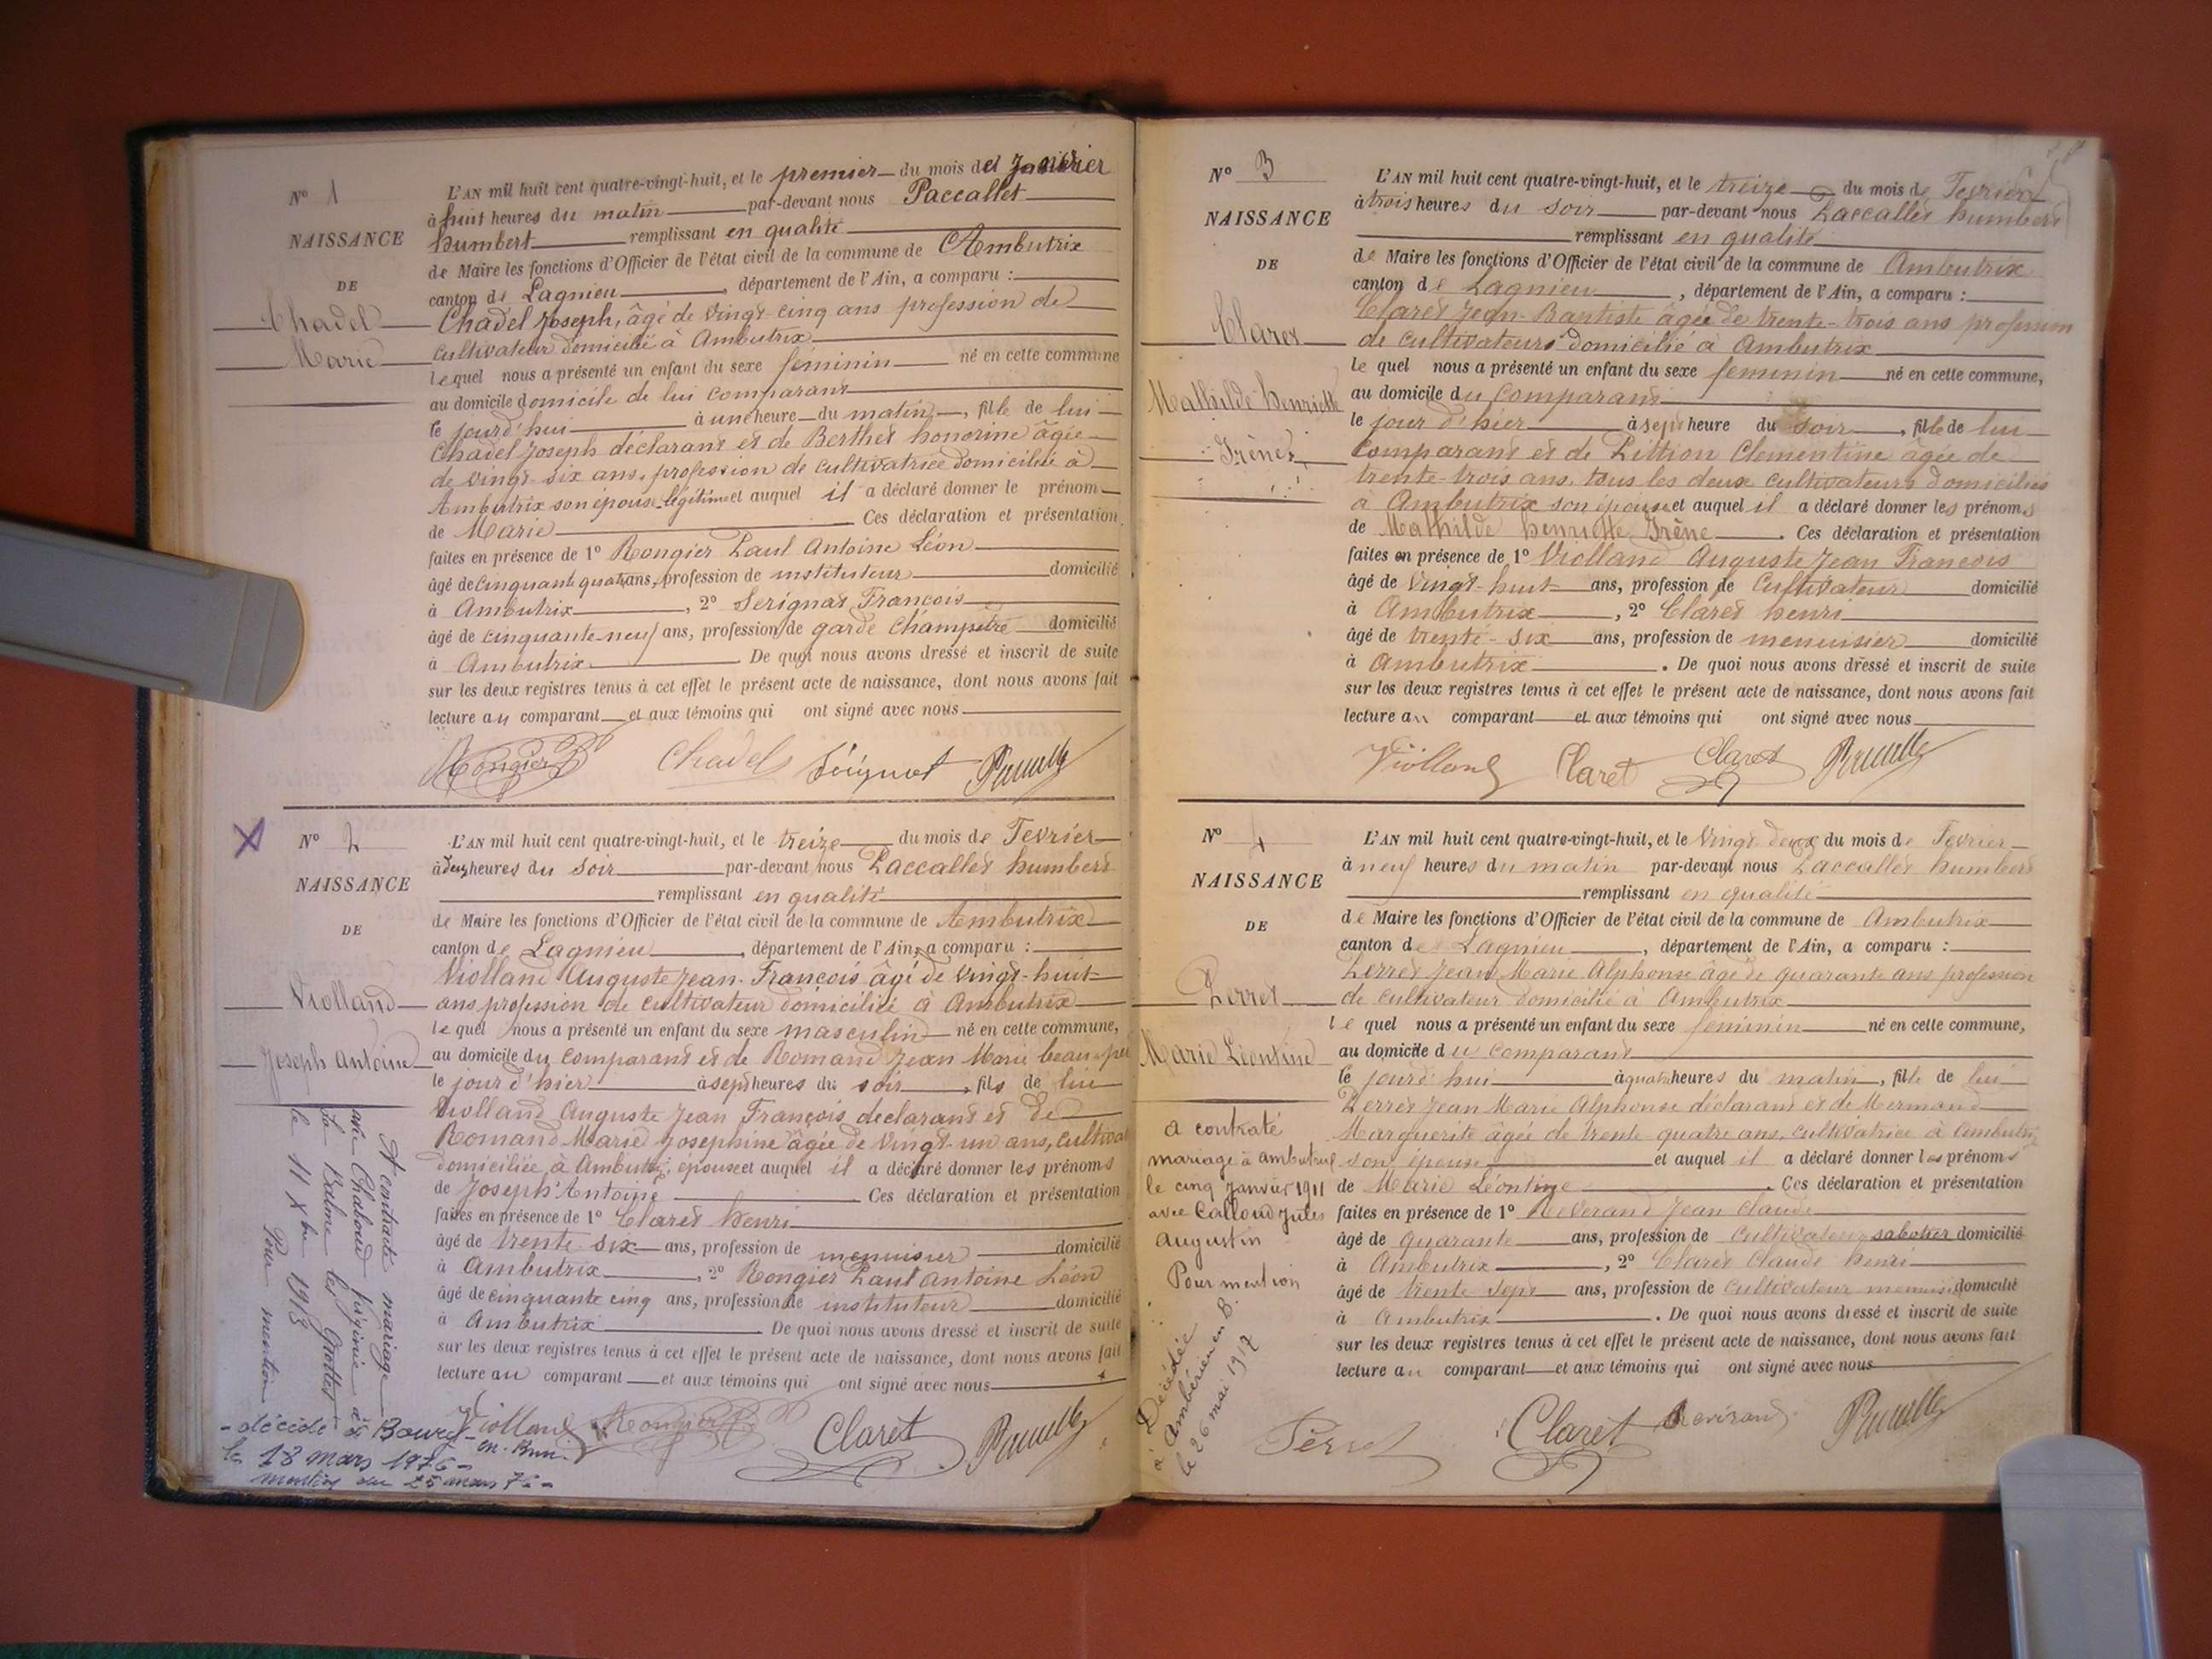 Nº 1
NAISSANCE
DE
Chadel
Marie
L'AN mil huit cent quatre-vingt-huit, et le premier du mois de Janvier
à huit heures du matin par-devant nous Paccallet
humbert remplissant en qualité
de Maire les fonctions d'Officier de l'état civil de la commune de Ambutrix
canton de Lagnieu, département de l'Ain, a comparu :
Chadel Joseph, âgé de vingt cinq ans profession de
cultivateur domicilié à Ambutrix
lequel nous a présenté un enfant du sexe féminin né en cette commune
au domicile domicile de lui comparant
le jourd'hui à une heure du matin, fille de lui
Chadel Joseph déclarant et de Berthet honorine âgée
de vingt six ans, profession de cultivatrice domiciliée à
Ambutrix son épouse légitime et auquel il a déclaré donner le prénom
de Marie Ces déclaration et présentation
faites en présence de 1º Rongier Paul Antoine Léon
âgé de cinquante quatre ans, profession de instituteur domicilié
à Ambutrix, 2º Serignat François
âgé de cinquante-neuf ans, profession de garde champêtre domicilié
à Ambutrix De quoi nous avons dressé et inscrit de suite
sur les deux registres tenus à cet effet le présent acte de naissance, dont nous avons fait
lecture au comparant et aux témoins qui ont signé avec nous
Rongier Chadel
Nº 2
NAISSANCE
DE
Violland
Joseph Antoine
A contracté mariage
avec Chaboud Virginie à
La Balme les Grottes
le 11 Xbre 1913
Pour mention
- décédé à Bourg-
en-
le 18 mars 1976 -
mention du 25 mars 76 -
L'AN mil huit cent quatre-vingt-huit, et le treize du mois de Fevrier
à deux heures du soir par-devant nous Paccallet humbert
remplissant en qualité
de Maire les fonctions d'Officier de l'état civil de la commune de Ambutrix
canton de Lagnieu, département de l'Ain, a comparu :
Violland Auguste Jean-François âgé de vingt-huit
ans profession de cultivateur domicilié à Ambutrix
lequel nous a présenté un enfant du sexe masculin né en cette commune,
au domicile du comparant et de Romand Jean Marie beau-
le jour d'hier à sept heures du soir, fils de lui
Violland Auguste Jean François declarant et de
Romand Marie Josephine âgée de vingt-un ans,
domiciliée à Ambutrix, épouse et auquel il a déclaré donner les prénoms
de Joseph Antoine Ces déclaration et présentation
faites en présence de 1º Claret henri
âgé de trente six ans, profession de menuisier domicilié
à Ambutrix, 2º Rongier Paul antoine Léon
âgé de cinquante cinq ans, profession de instituteur domicilié
à Ambutrix De quoi nous avons dressé et inscrit de suite
sur les deux registres tenus à cet effet le présent acte de naissance, dont nous avons fait
lecture au comparant et aux témoins qui ont signé avec nous
Violland Rongier Claret
Nº 3
NAISSANCE
DE
Claret
Mathilde henriette
Irène
L'AN mil huit cent quatre-vingt-huit, et le treize du mois de Fevrier
à trois heures du soir par-devant nous Paccallet humbert
remplissant en qualité
de Maire les fonctions d'Officier de l'état civil de la commune de Ambutrix
canton de Lagnieu, département de l'Ain, a comparu :
Claret Jean-Baptiste âgée de trente-trois ans profession
de cultivateurs domicilié à Ambutrix
le quel nous a présenté un enfant du sexe feminin né en cette commune,
au domicile du comparant
le jour d'hier à sept heure du soir, fille de lui
comparant et de Pittion Clementine âgée de
trente-trois ans, tous les deux cultivateurs domiciliés
à Ambutrix son épouse et auquel il a déclaré donner les prénoms
de Mathilde henriette Irène. Ces déclaration et présentation
faites en présence de 1º Violland Auguste Jean Francois
âgé de vingt-huit ans, profession de Cultivateur domicilié
à Ambutrix, 2º Claret henri
âgé de trente-six ans, profession de menuisier domicilié
à Ambutrix. De quoi nous avons dressé et inscrit de suite
sur les deux registres tenus à cet effet le présent acte de naissance, dont nous avons fait
lecture au comparant et aux témoins qui ont signé avec nous
Violland Claret Claret
Nº 4
NAISSANCE
DE
Perret
Marie Léontine
a contraté
mariage à ambutrix
le cinq Janvier 1911
avec Calloud Jules
Augustin
Pour mention
Décédée
à Ambérieu en B.
le 26 mai 1917
L'AN mil huit cent quatre-vingt-huit, et le vingt deux du mois de Fevrier
à neuf heures du matin par-devant nous Paccallet humbert
remplissant en qualité
de Maire les fonctions d'Officier de l'état civil de la commune de Ambutrix
canton de Lagnieu, département de l'Ain, a comparu :
Perret Jean Marie Alphonse âgé de quarante ans profession
de cultivateur domicilié à Ambutrix
le quel nous a présenté un enfant du sexe féminin né en cette commune,
au domicile du comparant
le jourd'hui à quatre heures du matin, fille de lui
Perret Jean Marie Alphonse déclarant et de Mermand
Marguerite âgée de trente quatre ans, cultivatrice à Ambutrix
son épouse et auquel il a déclaré donner les prénoms
de Marie Léontine. Ces déclaration et présentation
faites en présence de 1º Reverand Jean Claude
âgé de quarante ans, profession de Cultivateur sabotier domicilié
à Ambutrix, 2º Claret Claude henri
âgé de trente sept ans, profession de cultivateur domicilié
à Ambutrix. De quoi nous avons dressé et inscrit de suite
sur les deux registres tenus à cet effet le présent acte de naissance, dont nous avons fait
lecture au comparant et aux témoins qui ont signé avec nous
Perret Claret